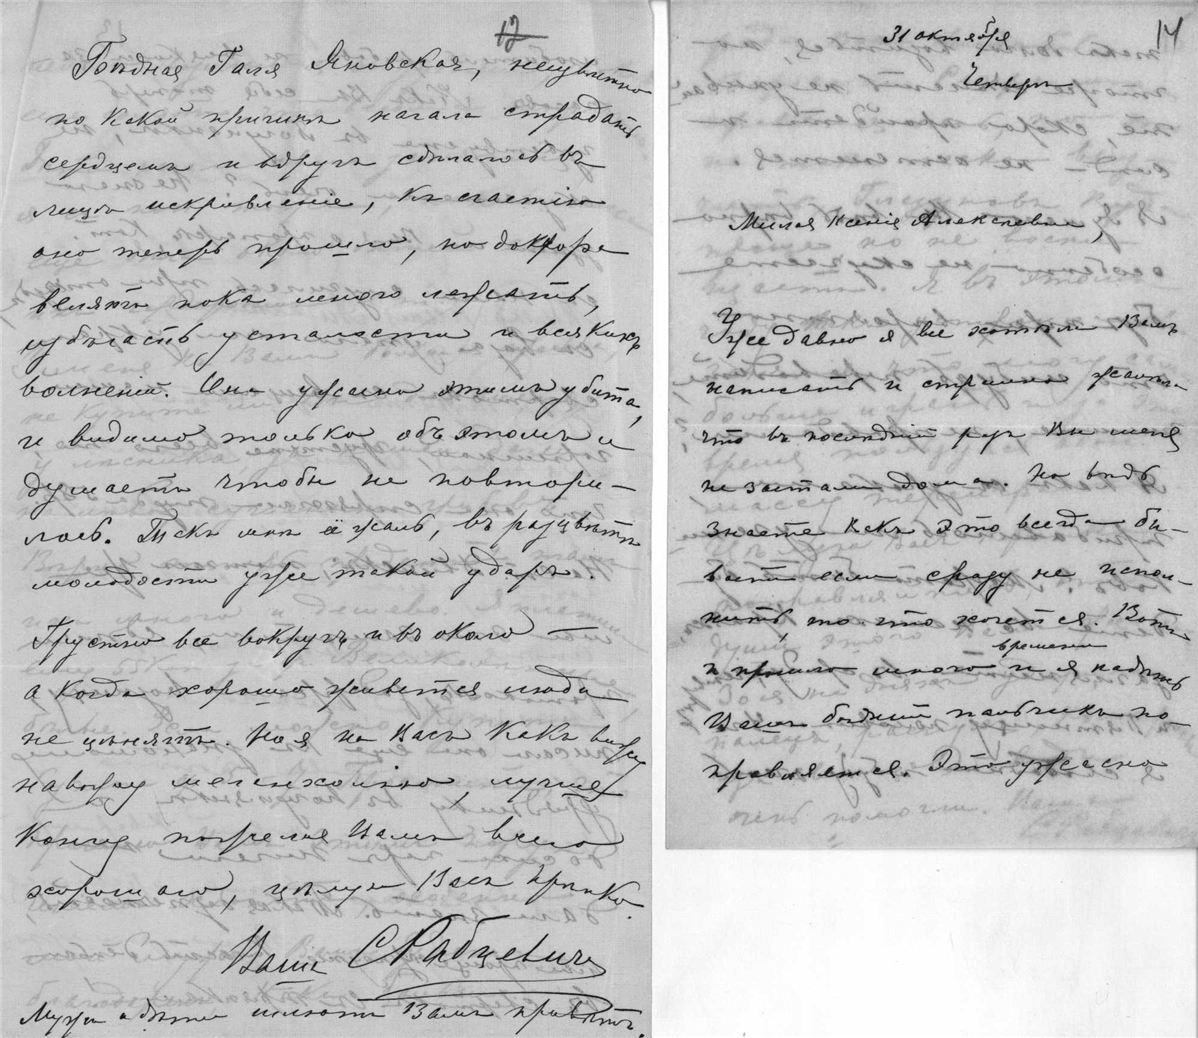 12
Бѣдная Галя Яновская, неизвѣстно
по какой причинѣ начала страдать
сердцемъ и вдругъ сдѣлалось въ
лицѣ искривленіе, къ счастію
оно теперь прошло, но доктора
велятъ пока много лежать,
избѣгать усталости и всякихъ
волненій. Она ужасно этимъ убита,
и видимо только объ этомъ и
думаетъ чтобы не повтори-
лось. Такъ мнѣ её жаль, въ разцвѣтѣ
молодости уже такой ударъ.
Грустно все вокругъ и въ около —
а когда хорошо живется люди
не цѣнятъ. Но я на Васъ какъ вижу
навожу меланхолію, лучше
кончу пожелая Вамъ всего
хорошаго, цѣлую Васъ крѣпко.
Ваша СРабцевичъ
Мужъ и дѣти шлютъ Вамъ привѣтъ.
14
31 октября
Четвергъ
Милая Ксенія Алексѣевна,
Уже давно я все хотѣла Вамъ
написать и страшно жалѣла
что въ послѣдній разъ Вы меня
не застали дома. Но вѣдь
знаете какъ это всегда бы-
ваетъ если сразу не испол-
нить, то что хочется. Вотъ
и прошло много времени и я надѣюсь
Вашъ бѣдный пальчикъ по-
правляется. Это ужасно